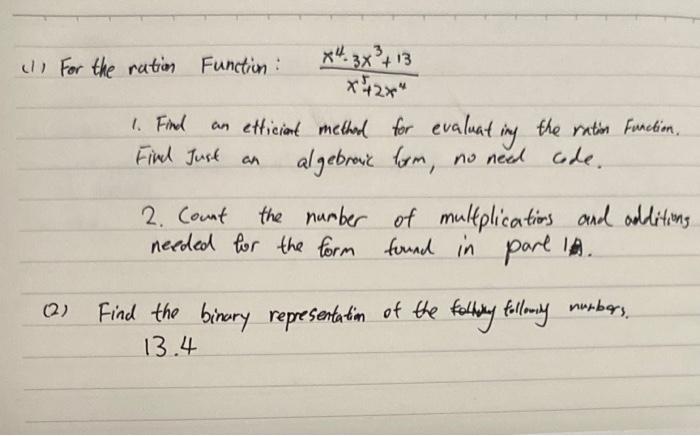 (1) For the ration Function: x⁴-3x³+13
x⁵+2x⁴
1. Find an efficient method for evaluating the ration Function.
Find Just an algebraic form, no need code.
2. Count the number of multplications and additions
needed for the form found in part 1.
(2) Find the binary representation of the following numbers.
13.4